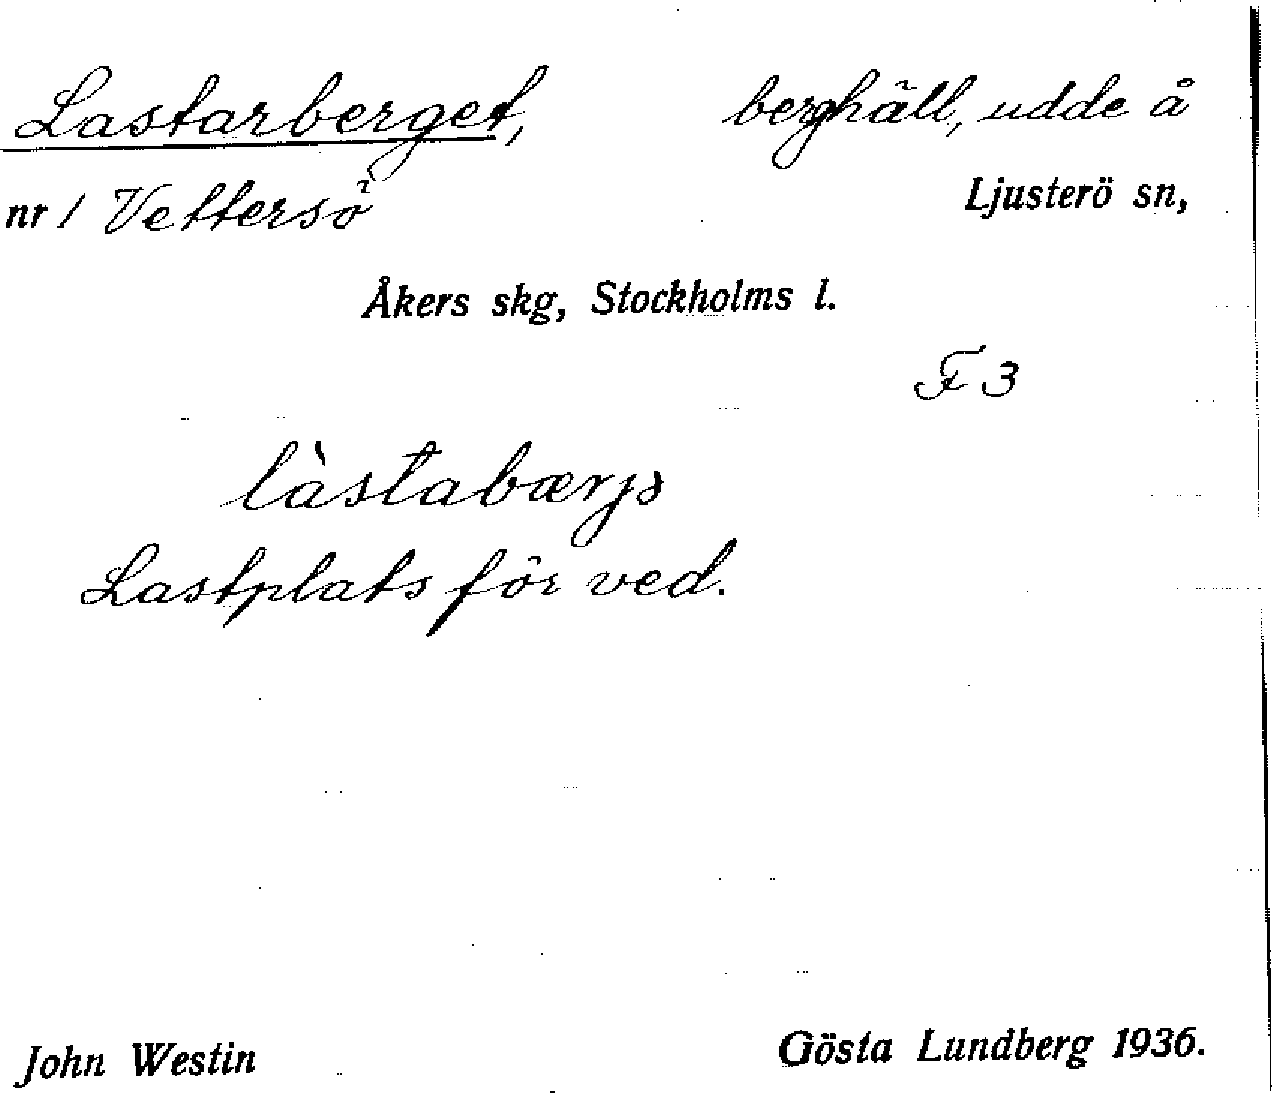 Lastarberget, berghäll, udde å
nr 1 Vettersö Ljusterö sn,
Åkers skg, Stockholms l.
F 3
làstabærjə
Lastplats för ved.
John Westin Gösta Lundberg 1936.